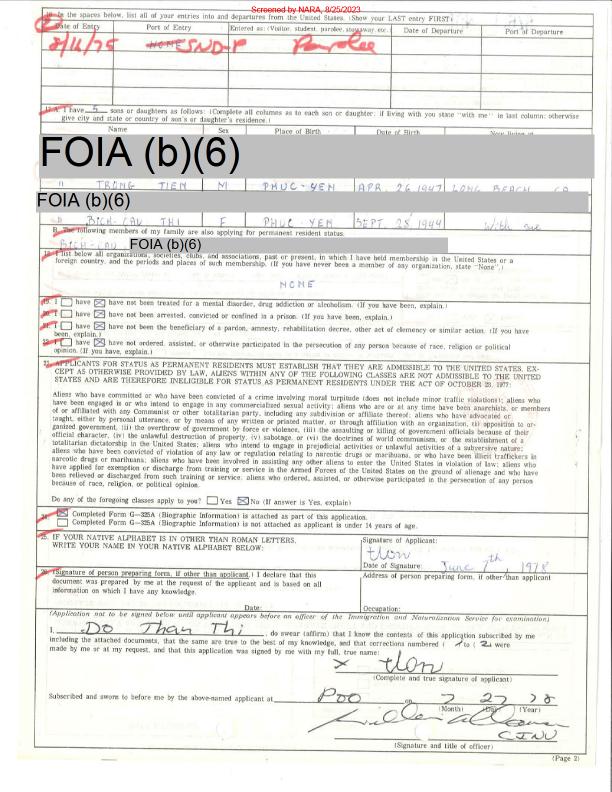 Screened by NARA, 8/25/2023
16. In the spaces below, list all of your entries into and departures from the United States. (Show your LAST entry FIRST)
Date of Entry Port of Entry Entered as: (Visitor, student, parolee, stowaway, etc.) Date of Departure Port of Departure
8/16/75 NONE SND-P Parolee
17. A. I have 5 sons or daughters as follows: (Complete all columns as to each son or daughter; if living with you state "with me" in last column; otherwise
give city and state or country of son's or daughter's residence.)
Name Sex Place of Birth Date of Birth Now living in
FOIA (b)(6)
" TRONG TIEN M PHUC-YEN APR. 26 1947 LONG BEACH, CA
FOIA (b)(6)
D BICH-CAU THI F PHUC YEN SEPT. 25 1944 With me
B. The following members of my family are also applying for permanent resident status:
BICH-CAU FOIA (b)(6)
18. I list below all organizations, societies, clubs, and associations, past or present, in which I have held membership in the United States or a
foreign country, and the periods and places of such membership. (If you have never been a member of any organization, state "None".)
NONE
19. I ☐ have ☒ have not been treated for a mental disorder, drug addiction or alcoholism. (If you have been, explain.)
20. I ☐ have ☒ have not been arrested, convicted or confined in a prison. (If you have been, explain.)
21. I ☐ have ☒ have not been the beneficiary of a pardon, amnesty, rehabilitation decree, other act of clemency or similar action. (If you have
been, explain.)
22. I ☐ have ☒ have not ordered, assisted, or otherwise participated in the persecution of any person because of race, religion or political
opinion. (If you have, explain.)
23. APPLICANTS FOR STATUS AS PERMANENT RESIDENTS MUST ESTABLISH THAT THEY ARE ADMISSIBLE TO THE UNITED STATES. EX-
CEPT AS OTHERWISE PROVIDED BY LAW, ALIENS WITHIN ANY OF THE FOLLOWING CLASSES ARE NOT ADMISSIBLE TO THE UNITED
STATES AND ARE THEREFORE INELIGIBLE FOR STATUS AS PERMANENT RESIDENTS UNDER THE ACT OF OCTOBER 28, 1977:
Aliens who have committed or who have been convicted of a crime involving moral turpitude (does not include minor traffic violations); aliens who
have been engaged in or who intend to engage in any commercialized sexual activity; aliens who are or at any time have been anarchists, or members
of or affiliated with any Communist or other totalitarian party, including any subdivision or affiliate thereof; aliens who have advocated or
taught, either by personal utterance, or by means of any written or printed matter, or through affiliation with an organization, (i) opposition to or-
ganized government, (ii) the overthrow of government by force or violence, (iii) the assaulting or killing of government officials because of their
official character, (iv) the unlawful destruction of property, (v) sabotage, or (vi) the doctrines of world communism, or the establishment of a
totalitarian dictatorship in the United States; aliens who intend to engage in prejudicial activities or unlawful activities of a subversive nature;
aliens who have been convicted of violation of any law or regulation relating to narcotic drugs or marihuana, or who have been illicit traffickers in
narcotic drugs or marihuana; aliens who have been involved in assisting any other aliens to enter the United States in violation of law; aliens who
have applied for exemption or discharge from training or service in the Armed Forces of the United States on the ground of alienage and who have
been relieved or discharged from such training or service; aliens who ordered, assisted, or otherwise participated in the persecution of any person
because of race, religion, or political opinion.
Do any of the foregoing classes apply to you? ☐ Yes ☒ No (If answer is Yes, explain)
24. ☒ Completed Form G-325A (Biographic Information) is attached as part of this application.
☐ Completed Form G-325A (Biographic Information) is not attached as applicant is under 14 years of age.
25. IF YOUR NATIVE ALPHABET IS IN OTHER THAN ROMAN LETTERS,
WRITE YOUR NAME IN YOUR NATIVE ALPHABET BELOW:
Signature of Applicant:
Date of Signature: June 7th, 1978
26. (Signature of person preparing form, if other than applicant.) I declare that this
document was prepared by me at the request of the applicant and is based on all
information on which I have any knowledge.
Date:
Address of person preparing form, if other than applicant
Occupation:
(Application not to be signed below until applicant appears before an officer of the Immigration and Naturalization Service for examination)
I, Do Than Thi, do swear (affirm) that I know the contents of this application subscribed by me
including the attached documents, that the same are true to the best of my knowledge, and that corrections numbered ( 1 to ( 2 were
made by me or at my request, and that this application was signed by me with my full, true name:
X
(Complete and true signature of applicant)
Subscribed and sworn to before me by the above-named applicant at POO on 7 27 78
(Month) (Day) (Year)
(Signature and title of officer)
(Page 2)